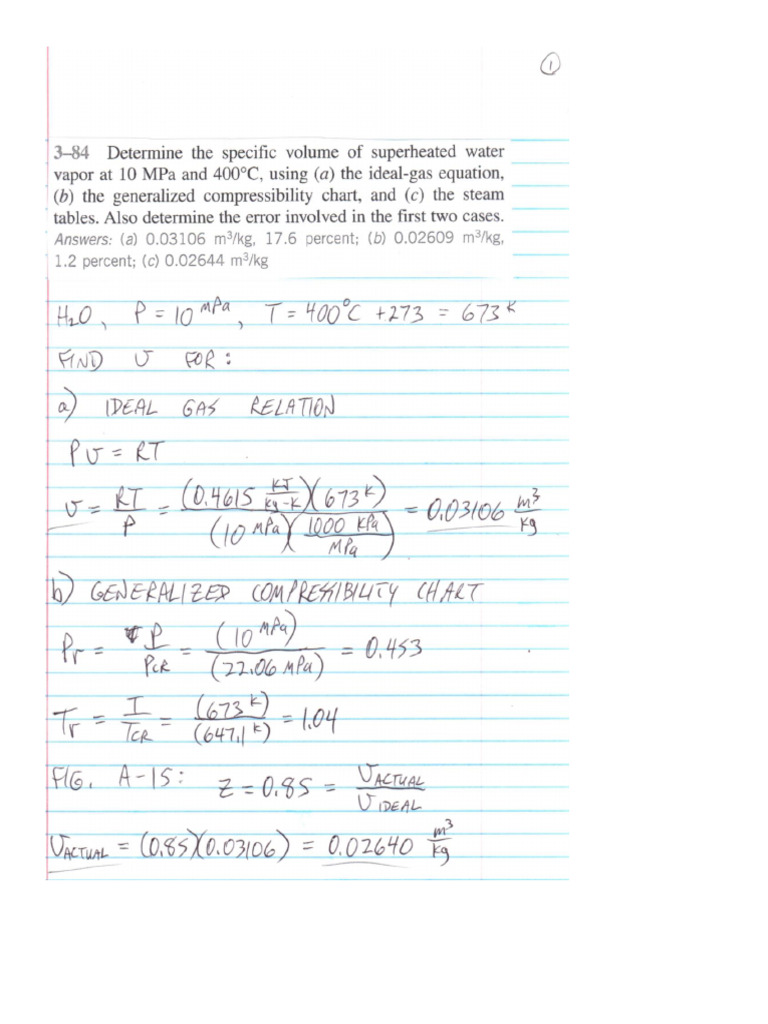 1
3–84 Determine the specific volume of superheated water
vapor at 10 MPa and 400°C, using (a) the ideal-gas equation,
(b) the generalized compressibility chart, and (c) the steam
tables. Also determine the error involved in the first two cases.
Answers: (a) 0.03106 m³/kg, 17.6 percent; (b) 0.02609 m³/kg,
1.2 percent; (c) 0.02644 m³/kg
H₂O, P = 10 MPa, T = 400°C + 273 = 673 K
FIND v FOR:
a) IDEAL GAS RELATION
Pv = RT
v = RT/P = (0.4615 KJ/kg-K)(673 K) / (10 MPa)(1000 KPa/MPa) = 0.03106 m³/kg
b) GENERALIZED COMPRESSIBILITY CHART
Pr = P/PCR = (10 MPa)/(22.06 MPa) = 0.453
Tr = T/TCR = (673 K)/(647.1 K) = 1.04
FIG. A-15: Z = 0.85 = vACTUAL/vIDEAL
vACTUAL = (0.85)(0.03106) = 0.02640 m³/kg